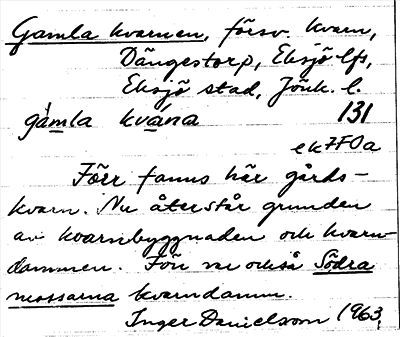 Gamla kvarnen, försv. kvarn,
Dängestorp, Eksjö lfs,
Eksjö stad, Jönk. l.
gamla kvána 131
ek 7F0a
Förr fanns här gårds-
kvarn. Nu återstår grunden
av kvarnbyggnaden och kvarn-
dammen. Förr var också Södra
mossarna kvarndamm.
Inger Danielsson 1963.